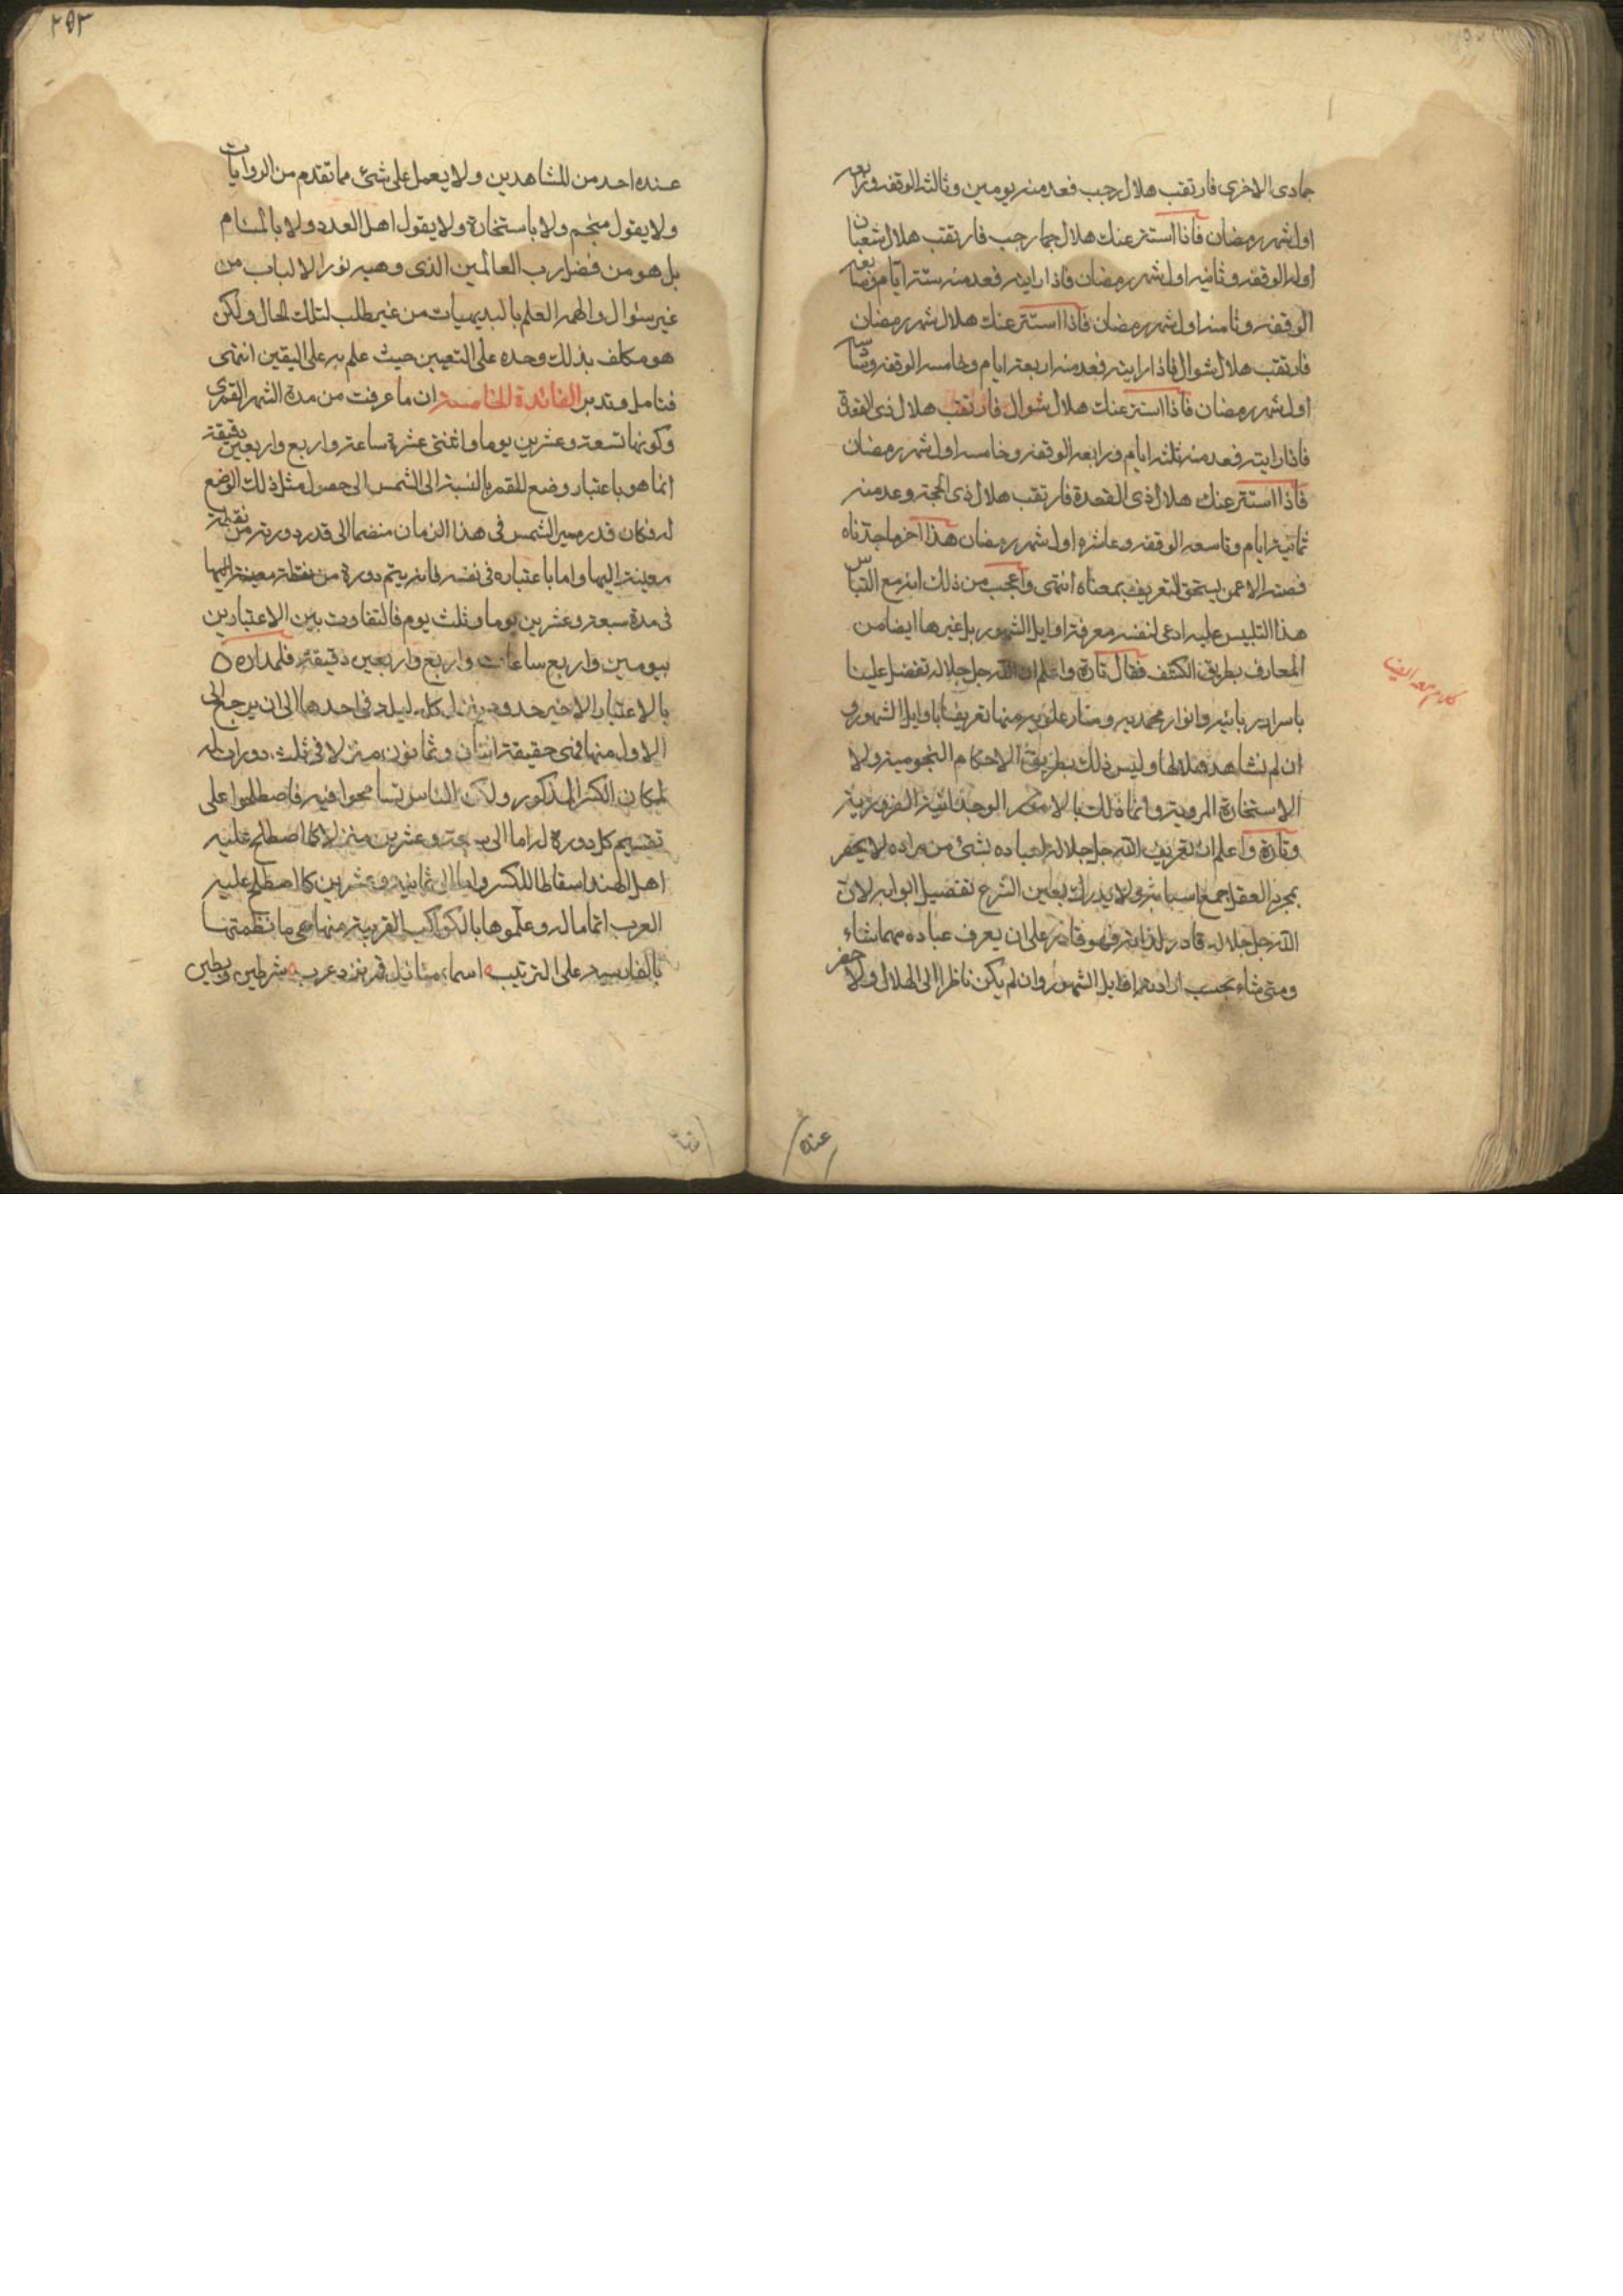 جمادى الاخرى فارتقب هلال رجب فعد منه يومين وثالثه الوقفه ورابعه
اول شهر رمضان فاذا استتر عنك هلال رجب فارتقب هلال شعبان
اوله الوقفه وثانيه اول شهر رمضان فاذا رايته فعد منه ستة ايام وسابعه
الوقفه وثامنه اول شهر رمضان فاذا استتر عنك هلال شهر رمضان
فارتقب هلال شوال فاذا رايته فعد منه اربعة ايام وخامسه الوقفه وسادسه
اول شهر رمضان فاذا استتر عنك هلال شوال فارتقب هلال ذى القعدة
فاذا رايته فعد منه ثلثة ايام ورابعه الوقفه وخامسه اول شهر رمضان
فاذا استتر عنك هلال ذى القعدة فارتقب هلال ذى الحجة وعد منه
ثمانية ايام وتاسعه الوقفه وعاشره اول شهر رمضان هذا اخر ما وجدناه
فصته الاعمن يستحق التعريف بمعناه انتهى واعجب من ذلك انه مع التباس
هذا التلبيس عليه ادعى لنفسه معرفة اوايل الشهور بل غيرها ايضا من
المعارف بطريق الكشف فقال تارة واعلم ان الله جل جلاله تفضل علينا
باسرار ربانيه وانوار محمديه ومنار علويه منها تعريفنا باوايل الشهور و
ان لم نشاهد هلالها وليس ذلك بطريق الاحكام النجومية ولا
الاستخارة المروية وانما ذلك بالامور الوجدانية الضرورية
وتارة واعلم ان تعريف الله جل جلاله لعباده بشئ من مراده لا يحصر
بمجرد العقل جميع اسبابه ولا يدرك بعين الشرع تفصيل ابوابه لان
الله جل جلاله قادر لذاته وهو قادر على ان يعرف عباده مهما شاء
ومتى شاء بحسب ارادته اوايل الشهور وان لم يكن ناظرا الى الهلال ولا حضر
كلام بعد
عنده
٢٥٣
عنده احد من المشاهدين ولا يعمل على شئ مما تقدم من الروايات
ولا يقول منجم ولا باستخارة ولا يقول اهل العدد ولا بالمنام
بل هو من فضل رب العالمين الذى وهبه نور الالباب من
غير سئوال والهمه العلم بالبديهيات من غير طلب لتلك الحال ولكن
هو مكلف بذلك وحده على التعيين حيث علم به على اليقين انتهى
فتامل وتدبر الفائدة الخامسة ان ما عرفت من مدة الشهر القمرى
وكونها تسعة وعشرين يوما واثنتى عشرة ساعة واربع واربعين دقيقة
انما هو باعتبار وضع للقمر بالنسبة الى الشمس الى حصول مثل ذلك الوضع
له فكان قدر مسير الشمس فى هذا الزمان منضما الى قدر دورته من نقطة
معينة اليها واما باعتباره فى نفسه فانه يتم دورة من نقطة معينة اليها
فى مدة سبعة وعشرين يوما وثلث يوم فالتفاوت بين الاعتبارين
بيومين واربع ساعات واربع واربعين دقيقة فلمداره
بالاعتبار الاخير حدود ينزل كل ليله فى احدها الى ان يرجع الى
الاول منها فهى حقيقة اثنان وثمانون منزلا فى ثلث دورات له
لمكان الكسر المذكور ولكن الناس تسامحوا فيه فاصطلحوا على
تقسيم كل دورة له اما الى سبعة وعشرين منزلا كما اصطلح عليه
اهل الهند اسقاطا للكسر واما الى ثمانية وعشرين كما اصطلح عليه
العرب اتماما له وعلموها بالكواكب القريبة منها هى ما نظمتها
بالفارسيه على الترتيب اسماء منازل قمر نزد عرب شرطين وبطين